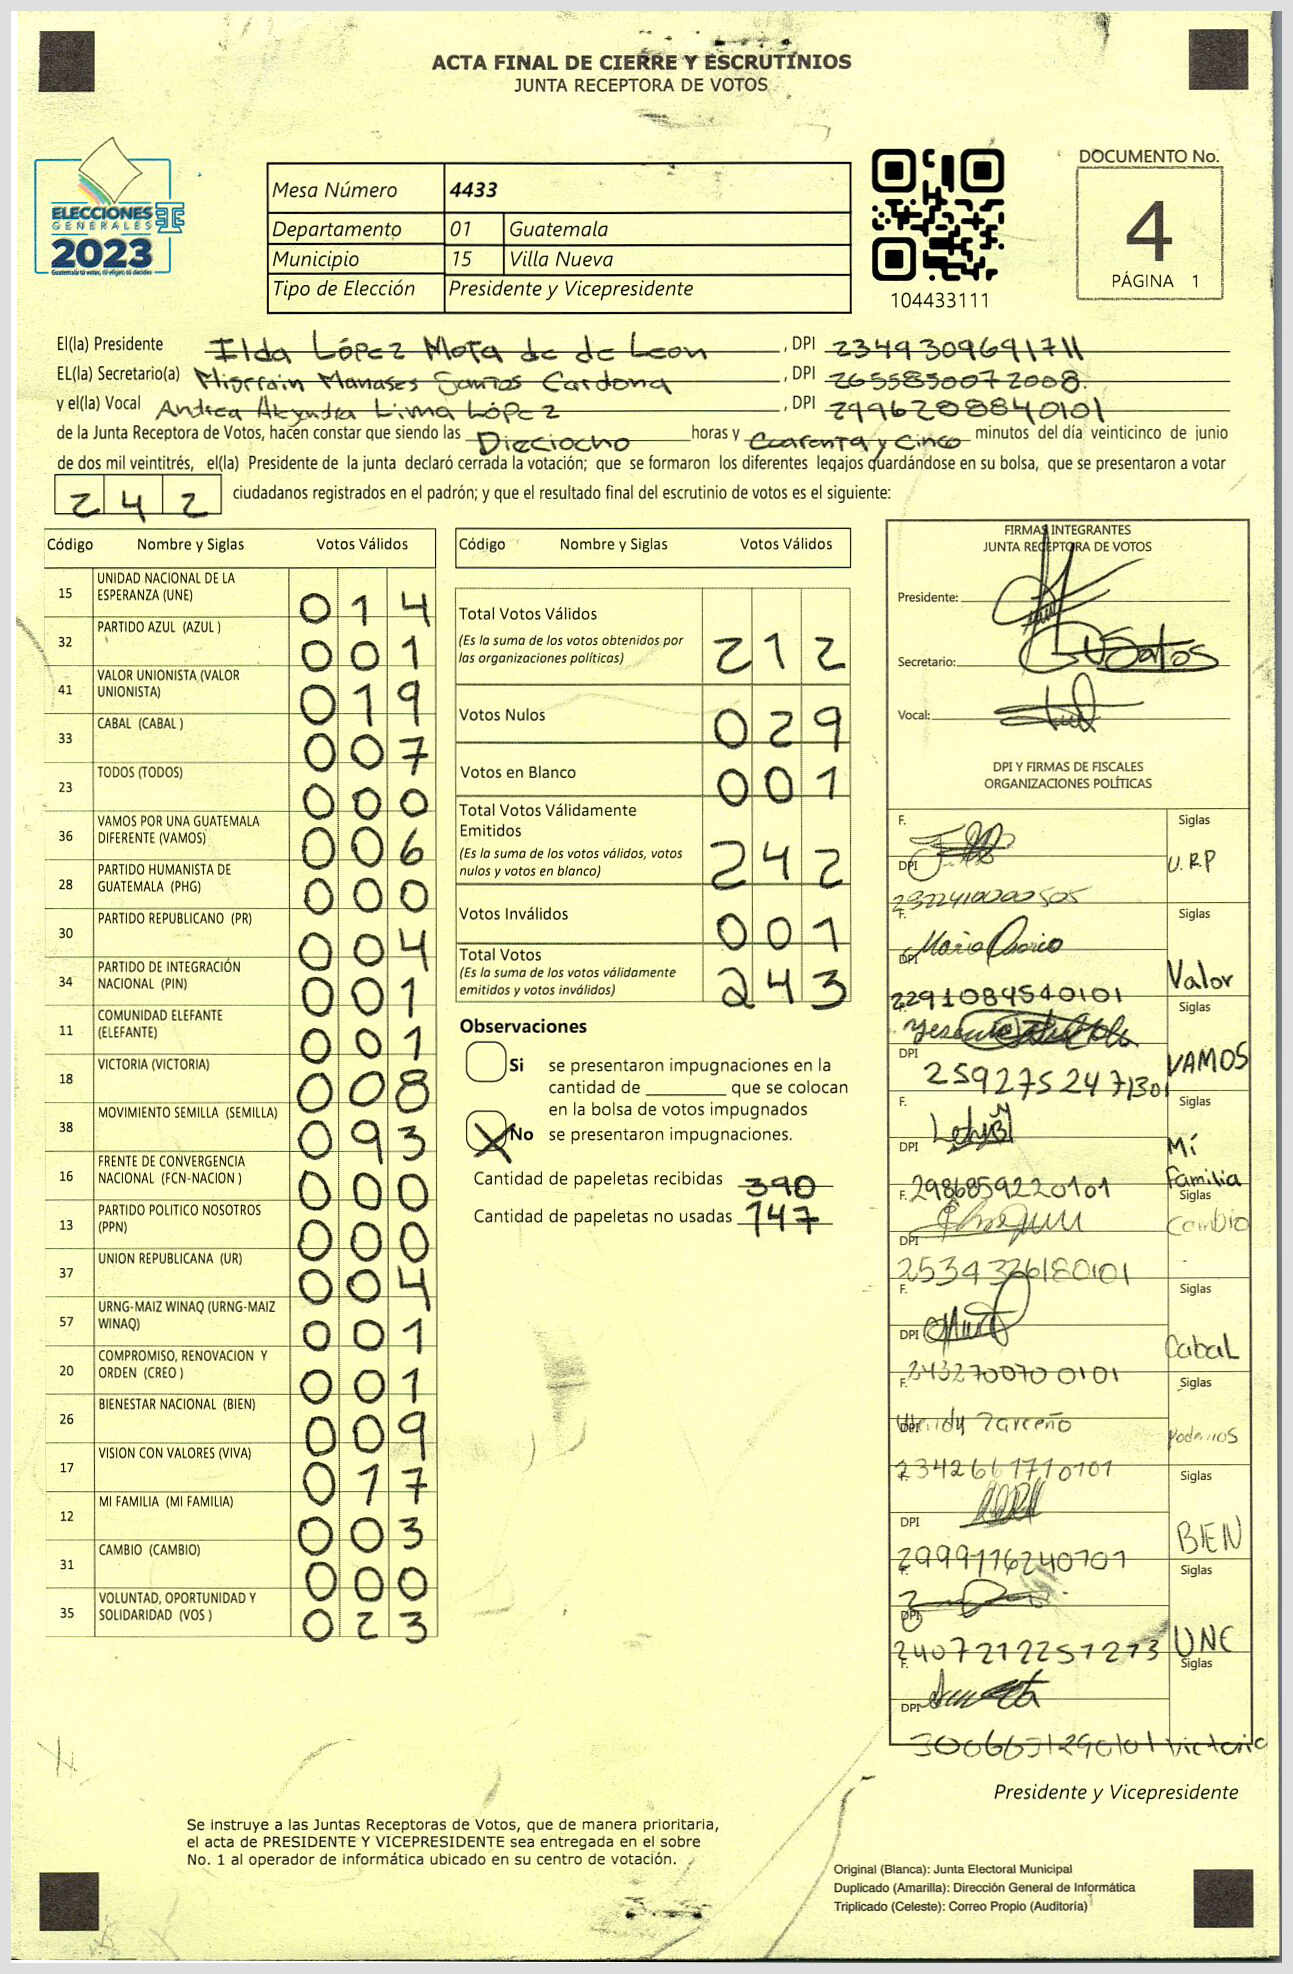 ACTA FINAL DE CIERRE Y ESCRUTINIOS
JUNTA RECEPTORA DE VOTOS
ELECCIONES
GENERALES
2023
Guatemala tú votas, tú eliges, tú decides
Mesa Número 4433
Departamento 01 Guatemala
Municipio 15 Villa Nueva
Tipo de Elección Presidente y Vicepresidente
104433111
DOCUMENTO No.
4
PÁGINA 1
El(la) Presidente Ilda López Mota de de Leon, DPI 2349309691711
EL(la) Secretario(a) Manases Santos Cardona, DPI 2655850072008.
y el(la) Vocal Andrea Lima López, DPI 2996208840101
de la Junta Receptora de Votos, hacen constar que siendo las Dieciocho horas y Cuarenta y Cinco minutos del día veinticinco de junio
de dos mil veintitrés, el(la) Presidente de la junta declaró cerrada la votación; que se formaron los diferentes legajos guardándose en su bolsa, que se presentaron a votar
242 ciudadanos registrados en el padrón; y que el resultado final del escrutinio de votos es el siguiente:
Código Nombre y Siglas Votos Válidos
15 UNIDAD NACIONAL DE LA ESPERANZA (UNE) 014
32 PARTIDO AZUL (AZUL ) 001
41 VALOR UNIONISTA (VALOR UNIONISTA) 019
33 CABAL (CABAL ) 007
23 TODOS (TODOS) 000
36 VAMOS POR UNA GUATEMALA DIFERENTE (VAMOS) 006
28 PARTIDO HUMANISTA DE GUATEMALA (PHG) 000
30 PARTIDO REPUBLICANO (PR) 004
34 PARTIDO DE INTEGRACIÓN NACIONAL (PIN) 001
11 COMUNIDAD ELEFANTE (ELEFANTE) 001
18 VICTORIA (VICTORIA) 008
38 MOVIMIENTO SEMILLA (SEMILLA) 093
16 FRENTE DE CONVERGENCIA NACIONAL (FCN-NACION ) 000
13 PARTIDO POLITICO NOSOTROS (PPN) 000
37 UNION REPUBLICANA (UR) 004
57 URNG-MAIZ WINAQ (URNG-MAIZ WINAQ) 001
20 COMPROMISO, RENOVACION Y ORDEN (CREO ) 001
26 BIENESTAR NACIONAL (BIEN) 009
17 VISION CON VALORES (VIVA) 017
12 MI FAMILIA (MI FAMILIA) 003
31 CAMBIO (CAMBIO) 000
35 VOLUNTAD, OPORTUNIDAD Y SOLIDARIDAD (VOS ) 023
Código Nombre y Siglas Votos Válidos
Total Votos Válidos 212
(Es la suma de los votos obtenidos por
las organizaciones políticas)
Votos Nulos 029
Votos en Blanco 001
Total Votos Válidamente
Emitidos 242
(Es la suma de los votos válidos, votos
nulos y votos en blanco)
Votos Inválidos 001
Total Votos 243
(Es la suma de los votos válidamente
emitidos y votos inválidos)
Observaciones
Si se presentaron impugnaciones en la
cantidad de ________ que se colocan
en la bolsa de votos impugnados
X No se presentaron impugnaciones.
Cantidad de papeletas recibidas 390
Cantidad de papeletas no usadas 147
FIRMAS INTEGRANTES
JUNTA RECEPTORA DE VOTOS
Presidente:
Secretario: Satos
Vocal:
DPI Y FIRMAS DE FISCALES
ORGANIZACIONES POLÍTICAS
F. Siglas
DPI U.R.P
F. Mario Siglas
DPI Valor
2291084540101
Siglas
DPI VAMOS
2592752471301
F. Siglas
DPI Mi
Familia
2986859220101
F. Siglas
DPI Cambio
2534326180101
F. Siglas
DPI Cabal
243270070 0101
F. Siglas
DPI Wendy Zarceño Podemos
2342661710101
Siglas
DPI BIEN
2999116240701
Siglas
DPI UNE
2407212251213
F. Siglas
DPI
3006631290101 Victoria
Presidente y Vicepresidente
Se instruye a las Juntas Receptoras de Votos, que de manera prioritaria,
el acta de PRESIDENTE Y VICEPRESIDENTE sea entregada en el sobre
No. 1 al operador de informática ubicado en su centro de votación.
Original (Blanca): Junta Electoral Municipal
Duplicado (Amarilla): Dirección General de Informática
Triplicado (Celeste): Correo Propio (Auditoría)